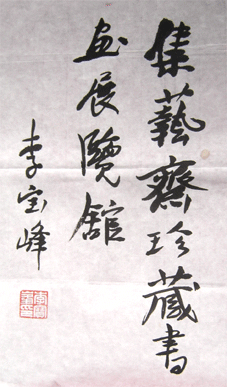 集藝齋珍藏書
画展覽舘
李宝峰